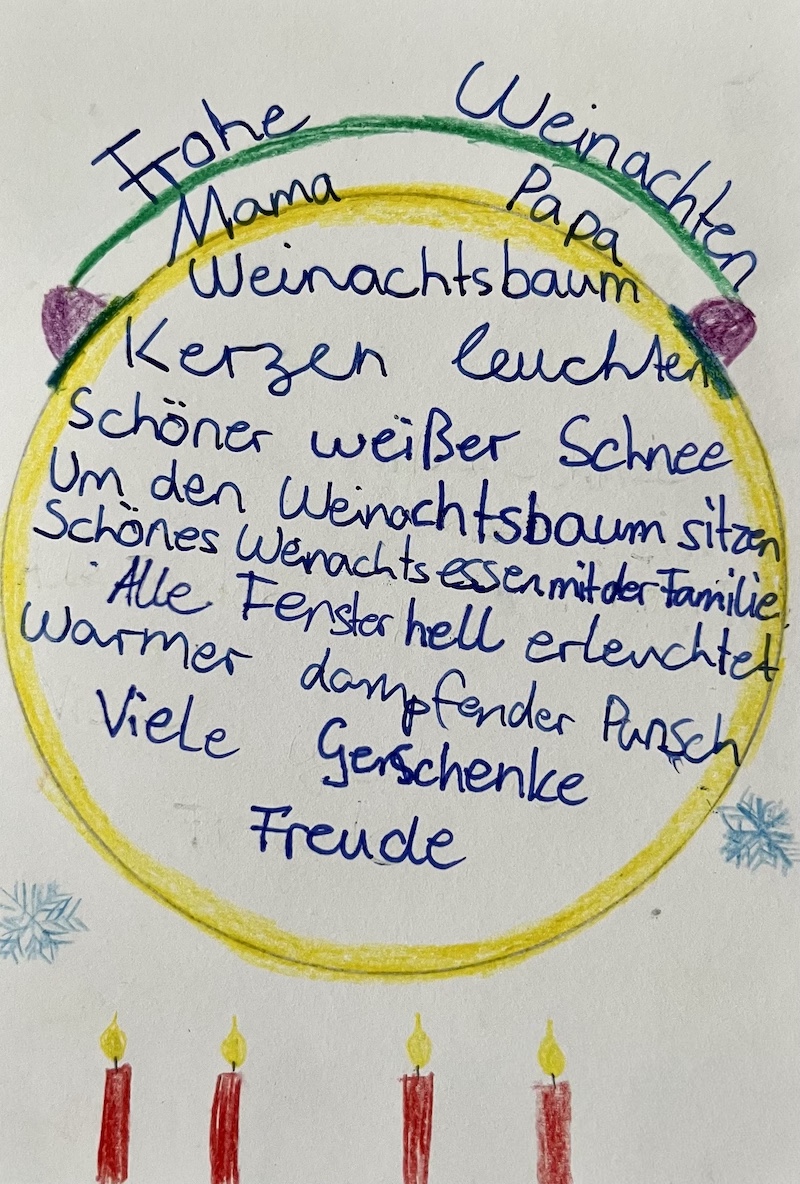 Frohe Weinachten
Mama Papa
Weinachtsbaum
Kerzen leuchten
Schöner weißer Schnee
Um den Weinachtsbaum sitzen
Schönes Wenachtsessen mit der Familie
Alle Fenster hell erleuchtet
Warmer dampfender Punsch
Viele Gerschenke
Freude